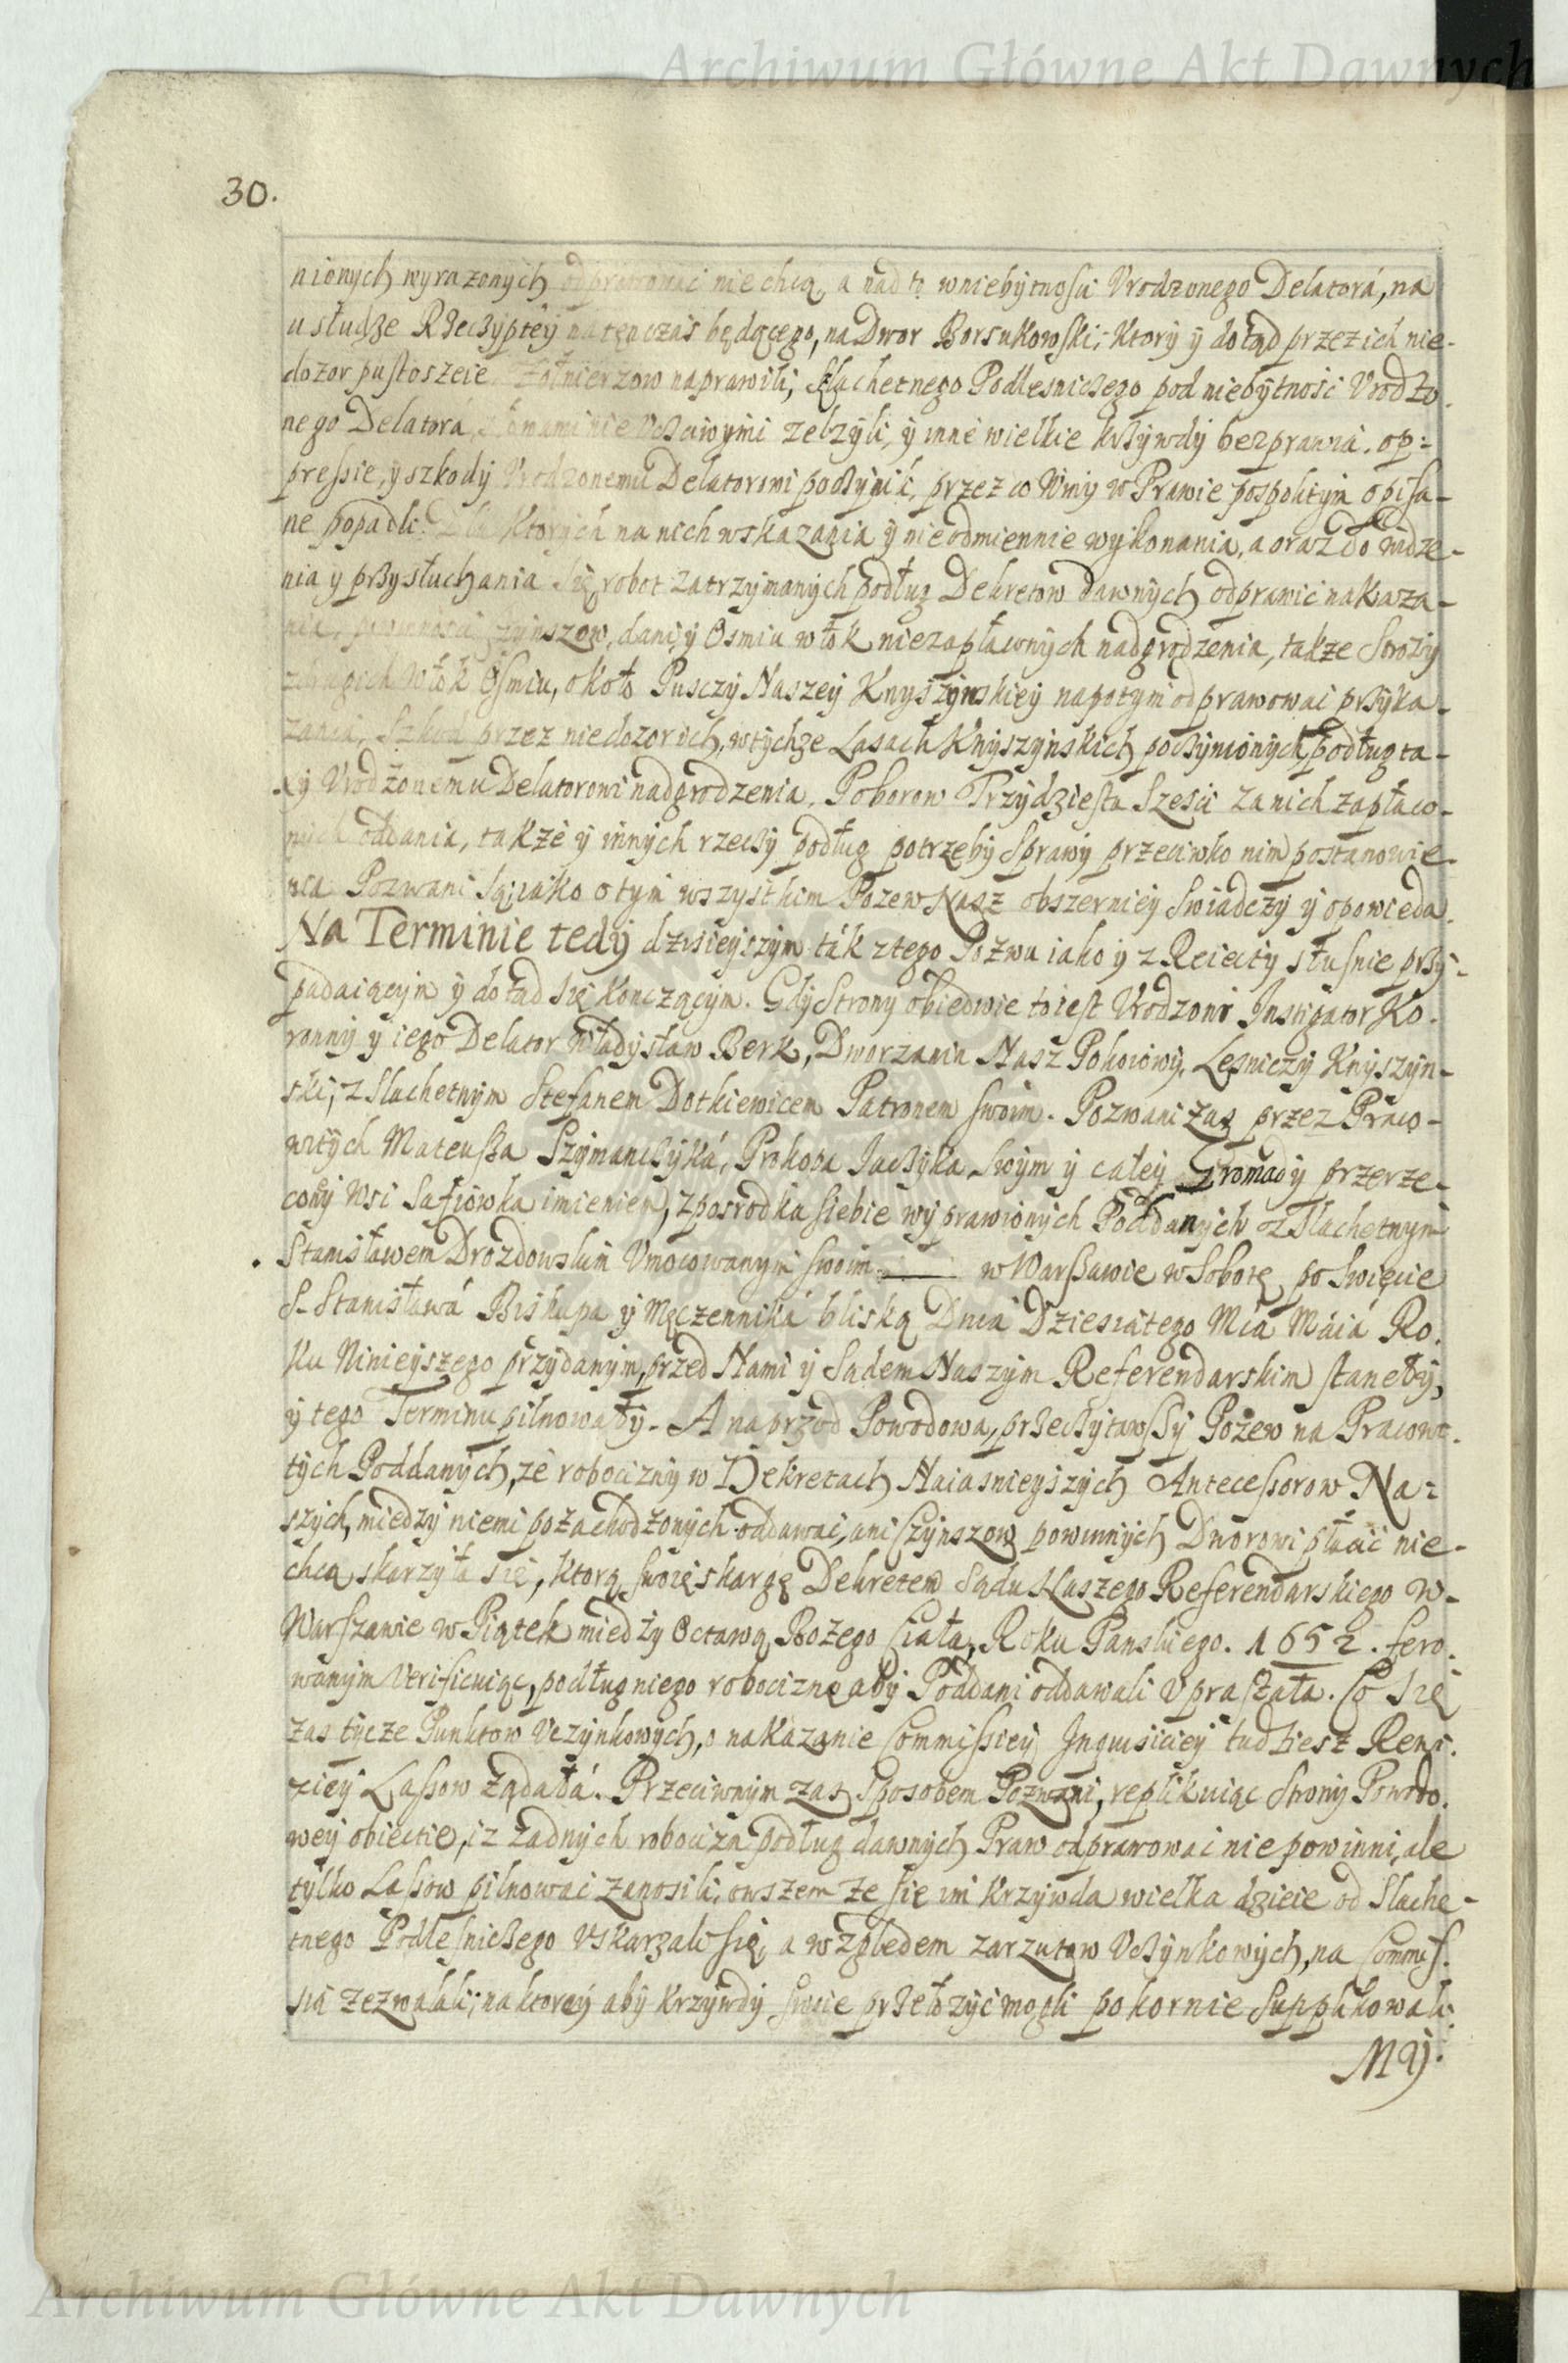 Archiwum Główne Akt Dawnych
30.
nionych wyrazonych odprawowac nie chcą, a nad to w niebytnosci Vrodzonego Delatorá, na
usłudze Rzeczyptey natenczas będącego, na Dwor Borsukowski, ktory y dotąd przez ich nie-
dozor pustoszeie Zołnierzow naprawili, Szlachetnego Podlesniczego pod niebytnosc Vrodzo-
nego Delatorá, słowami nie Vcciwymi zelzyli, y inne wielkie krzywdy bezprawia, op:
pressie, y szkody Vrodzonemu Delatorowi poczynili, przez co Winy w Prawie pospolitym opisa-
ne popadli. Dla ktorych na nich wskazania y nieodmiennie wykonania, a oraz do widze-
nia y przysłuchania się robot zatrzymanych podług Dekretow dawnych odprawic nakaza-
nia, powinnosci czynszow, dani, y Osmiu włok niezapławnych nadgrodzenia, takze Strozy
z drugich włok Osmiu, około Pusczy Naszey Knyszynskiey napotym odprawowac przyka-
zania, Szkod przez niedozor ich, w tychze Lasach Knyszynskich poczynionych podług ta-
xy Vrodzonemu Delatorowi nadgrodzenia, Poborow Trzydziesta Szesci za nich zapłaco-
nych oddania, takze y innych rzeczy podług potrzeby Sprawy przeciwko nim postanowie-
nia Pozwani są, iako o tym wszystkim Pozew Nasz obszerniey Swiadczy y opowieda.
Na Terminie tedy dzisieyszym ták z tego Pozwu iako y z Reiecty słusnie przy-
padaiącym y dotąd się konczącym. Gdy Strony obiedwie to iest Vrodzoni Instigator Ko-
ronny y iego Delator Władysław Berk, Dworzanin Nasz Pokoiowy, Lesniczy Knyszyn-
ski, z Slachetnym Stefanem Dotkiewicem Patronem swoim. Pozwani zas przez Praco-
witych Mateusza Szymanczyká, Prokopa Jaczyka, swym y całey Gromady przerze-
cony Wsi Safiowka imieniem, zposrodka siebie wyprawionych Poddanych z Slachetnym
Stanisławem Drozdowskim Vmocowanym swoim w Warszawie w Sobotę po Swięcie
S. Stanisławá Biskupa y Męczenniká bliską Dnia Dziesiątego Mca Máiá Ro-
ku Ninieyszego przydanym, przed Nami y Sądem Naszym Referendarskim stanęły,
y tego Terminu pilnowały. A naprzod Powodowa, przeczytawszy Pozew na Pracowi-
tych Poddanych, ze robocizny w Dekretach Naiasnieyszych Antecessorow Na:
szych, miedzy niemi pozachodzonych oddawac, ani czynszow powinnych Dworowi płacic nie-
chcą skarzyła się, ktorą swoię skargę Dekretem Sądu Naszego Referendarskiego w-
Warszawie w Piątek miedzy Octawą Bozego Ciała, Roku Panskiego. 1652. fero-
wanym Verificuiąc, podług niego robociznę aby Poddani oddawali Vpraszała. Co się
zas tycze Punktow Vczynkowych, o nakazanie Commissiey Inquisiciey tudziesz Reui-
ziey Lassow ządałá. Przeciwnym zas Sposobem Pozwani, replikuiąc Strony Powodo-
wey obiectie, iz zadnych robocizn podług dawnych Praw odprawowac nie powinni, ale
tylko Lassow pilnowac zanosili, owszem ze się im krzywda wielka dzieie od Slache-
tnego Podlesniczego Vskarzali się, a względem zarzutow Vczynkowych, na Commis-
sią zezwalali, na ktorey aby krzywdy swoie przełozyc mogli pokornie Supplikowali.
My.
Archiwum Główne Akt Dawnych